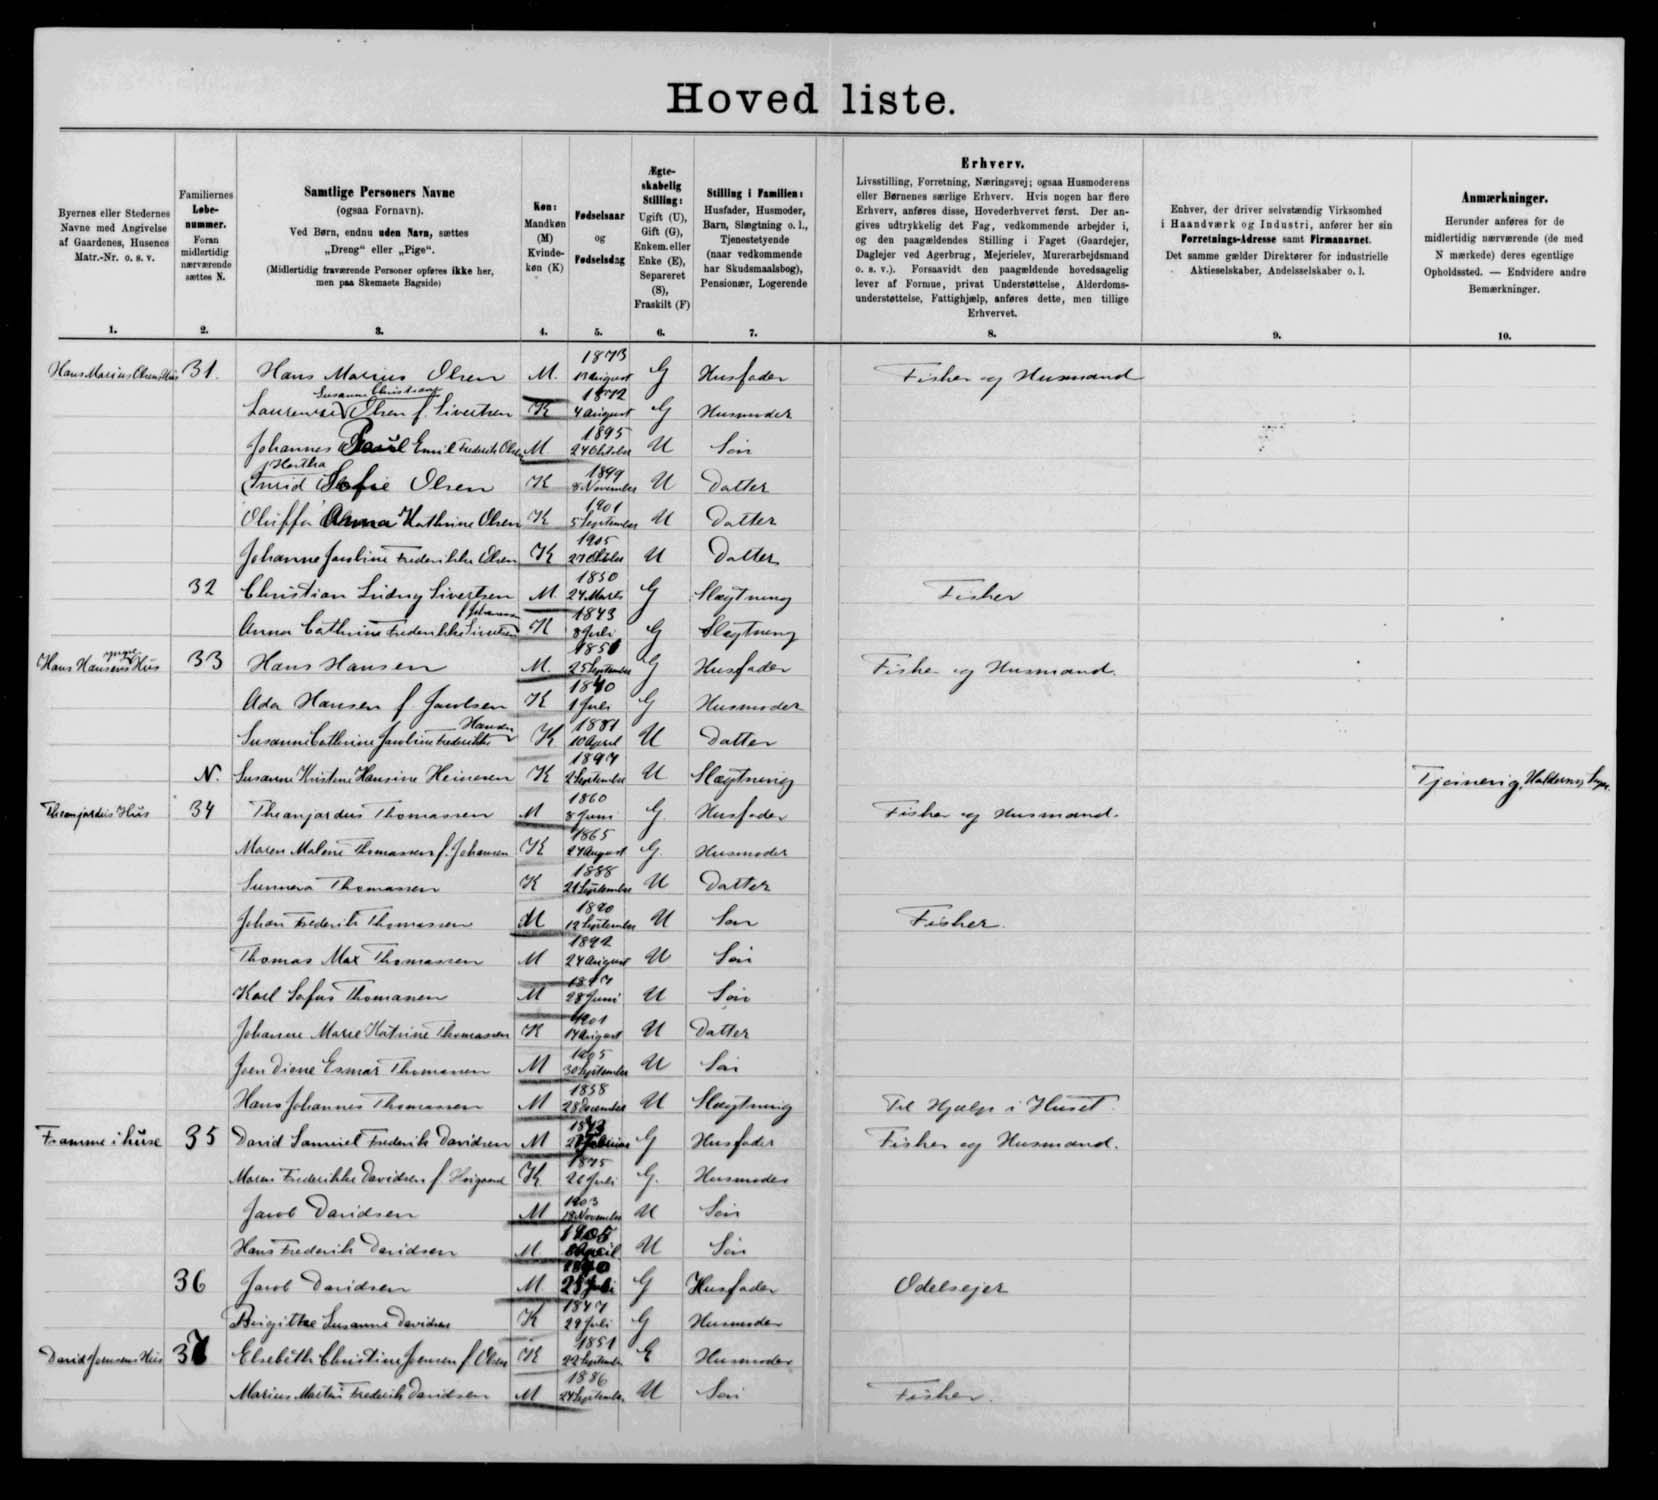 Hoved liste.
Byernes eller Stedernes Navne med Angivelse af Gaardenes, Husenes Matr.-Nr. o. s. v.
Familiernes Løbenummer. Foran midlertidig nærværende sættes N.
Samtlige Personers Navne
(ogsaa Fornavn).
Ved Børn, endnu uden Navn, sættes „Dreng“ eller „Pige“.
(Midlertidig fraværende Personer opføres ikke her, men paa Skemaets Bagside)
Køn: Mandkøn (M) Kvindekøn (K)
Fødselsaar og Fødselsdag
Ægteskabelig Stilling: Ugift (U), Gift (G), Enkem. eller Enke (E), Separeret (S), Fraskilt (F)
Stilling i Familien: Husfader, Husmoder, Barn, Slægtning o. l., Tjenestetyende (naar vedkommende har Skudsmaalsbog), Pensionær, Logerende
Erhverv.
Livsstilling, Forretning, Næringsvej; ogsaa Husmoderens eller Børnenes særlige Erhverv. Hvis nogen har flere Erhverv, anføres disse, Hovederhvervet først. Der angives udtrykkelig det Fag, vedkommende arbejder i, og den paagældendes Stilling i Faget (Gaardejer, Daglejer ved Agerbrug, Mejerielev, Murerarbejdsmand o. s. v.). Forsaavidt den paagældende hovedsagelig lever af Formue, privat Understøttelse, Alderdomsunderstøttelse, Fattighjælp, anføres dette, men tillige Erhvervet.
Enhver, der driver selvstændig Virksomhed i Haandværk og Industri, anfører her sin Forretnings-Adresse samt Firmanavnet. Det samme gælder Direktører for industrielle Aktieselskaber, Andelsselskaber o. l.
Anmærkninger.
Herunder anføres for de midlertidig nærværende (de med N mærkede) deres egentlige Opholdssted. — Endvidere andre Bemærkninger.
1. 2. 3. 4. 5. 6. 7. 8. 9. 10.
Hans Marius Olsens Hus 31. Hans Marius Olsen M. 1873 August G Husfader Fisker og Husmand
Susanne Christiane Olsen f. Sivertsen K 1872 4 August G Husmoder
Johannes Poul Emil Frederik Olsen M 1895 24 Oktober U Søn
Hertha Sofie Olsen K 1899 8 November U Datter
Oluffa Anna Kathrine Olsen K 1901 5 September U Datter
Johanne Jacobine Frederikke Olsen K 1905 27 Oktober U Datter
32 Christian Ludvig Sivertsen M. 1850 24 Marts G Slægtning Fisker
Anna Cathrine Frederikke Sivertsen f. Johannesen K 1843 8 Juli G Slægtning
Hans Hansens Hus 33 Hans Hansen M. 25 September G Husfader Fisker og Husmand.
Ada Hansen f. Jacobsen K 1840 1 Juli G Husmoder
Susanne Cathrine Jacobine Frederikke Hansen K 1881 10 April U Datter
N. Susanne Kristine Hansine Heinesen K 1897 2 September U Slægtning Tjørnevig, Haldersvig Sogn.
Theanjardus Hus 34 Theanjardus Thomassen M 1860 8 Juni G Husfader Fisker og Husmand.
Maren Malene Thomassen f. Johansen K 1865 27 August G. Husmoder
Sunneva Thomassen K 1888 21 September U Datter
Johan Frederik Thomassen M 1890 12 September U Søn Fisker.
Thomas Max Thomassen M 1892 24 August U Søn
Karl Sofus Thomassen M 1897 28 Juni U Søn
Johanne Marie Katrine Thomassen K 1901 14 August U Datter
Joen Diene Esmar Thomassen M 1905 30 September U Søn
Hans Johannes Thomassen M 1858 28 December U Slægtning Til Hjælp i Huset.
Framme i húse 35 David Samuel Frederik Davidsen M 1873 Februar G Husfader Fisker og Husmand.
Maren Frederikke Davidsen f. Højgaard K 1875 20 Juli G. Husmoder
Jacob Davidsen M 1903 18 November U Søn
Hans Frederik Davidsen M 1905 8 April U Søn
36 Jacob Davidsen M 1840 28 Juli G Husfader Odelsejer
Birgithe Susanne Davidsen K 1847 29 Juli G Husmoder
David Joensens Hus 37 Elsebeth Christine Joensen f. Olsen K 1851 22 September E Husmoder
Marius Martin Frederik Davidsen M 1886 24 September U Søn Fisker.